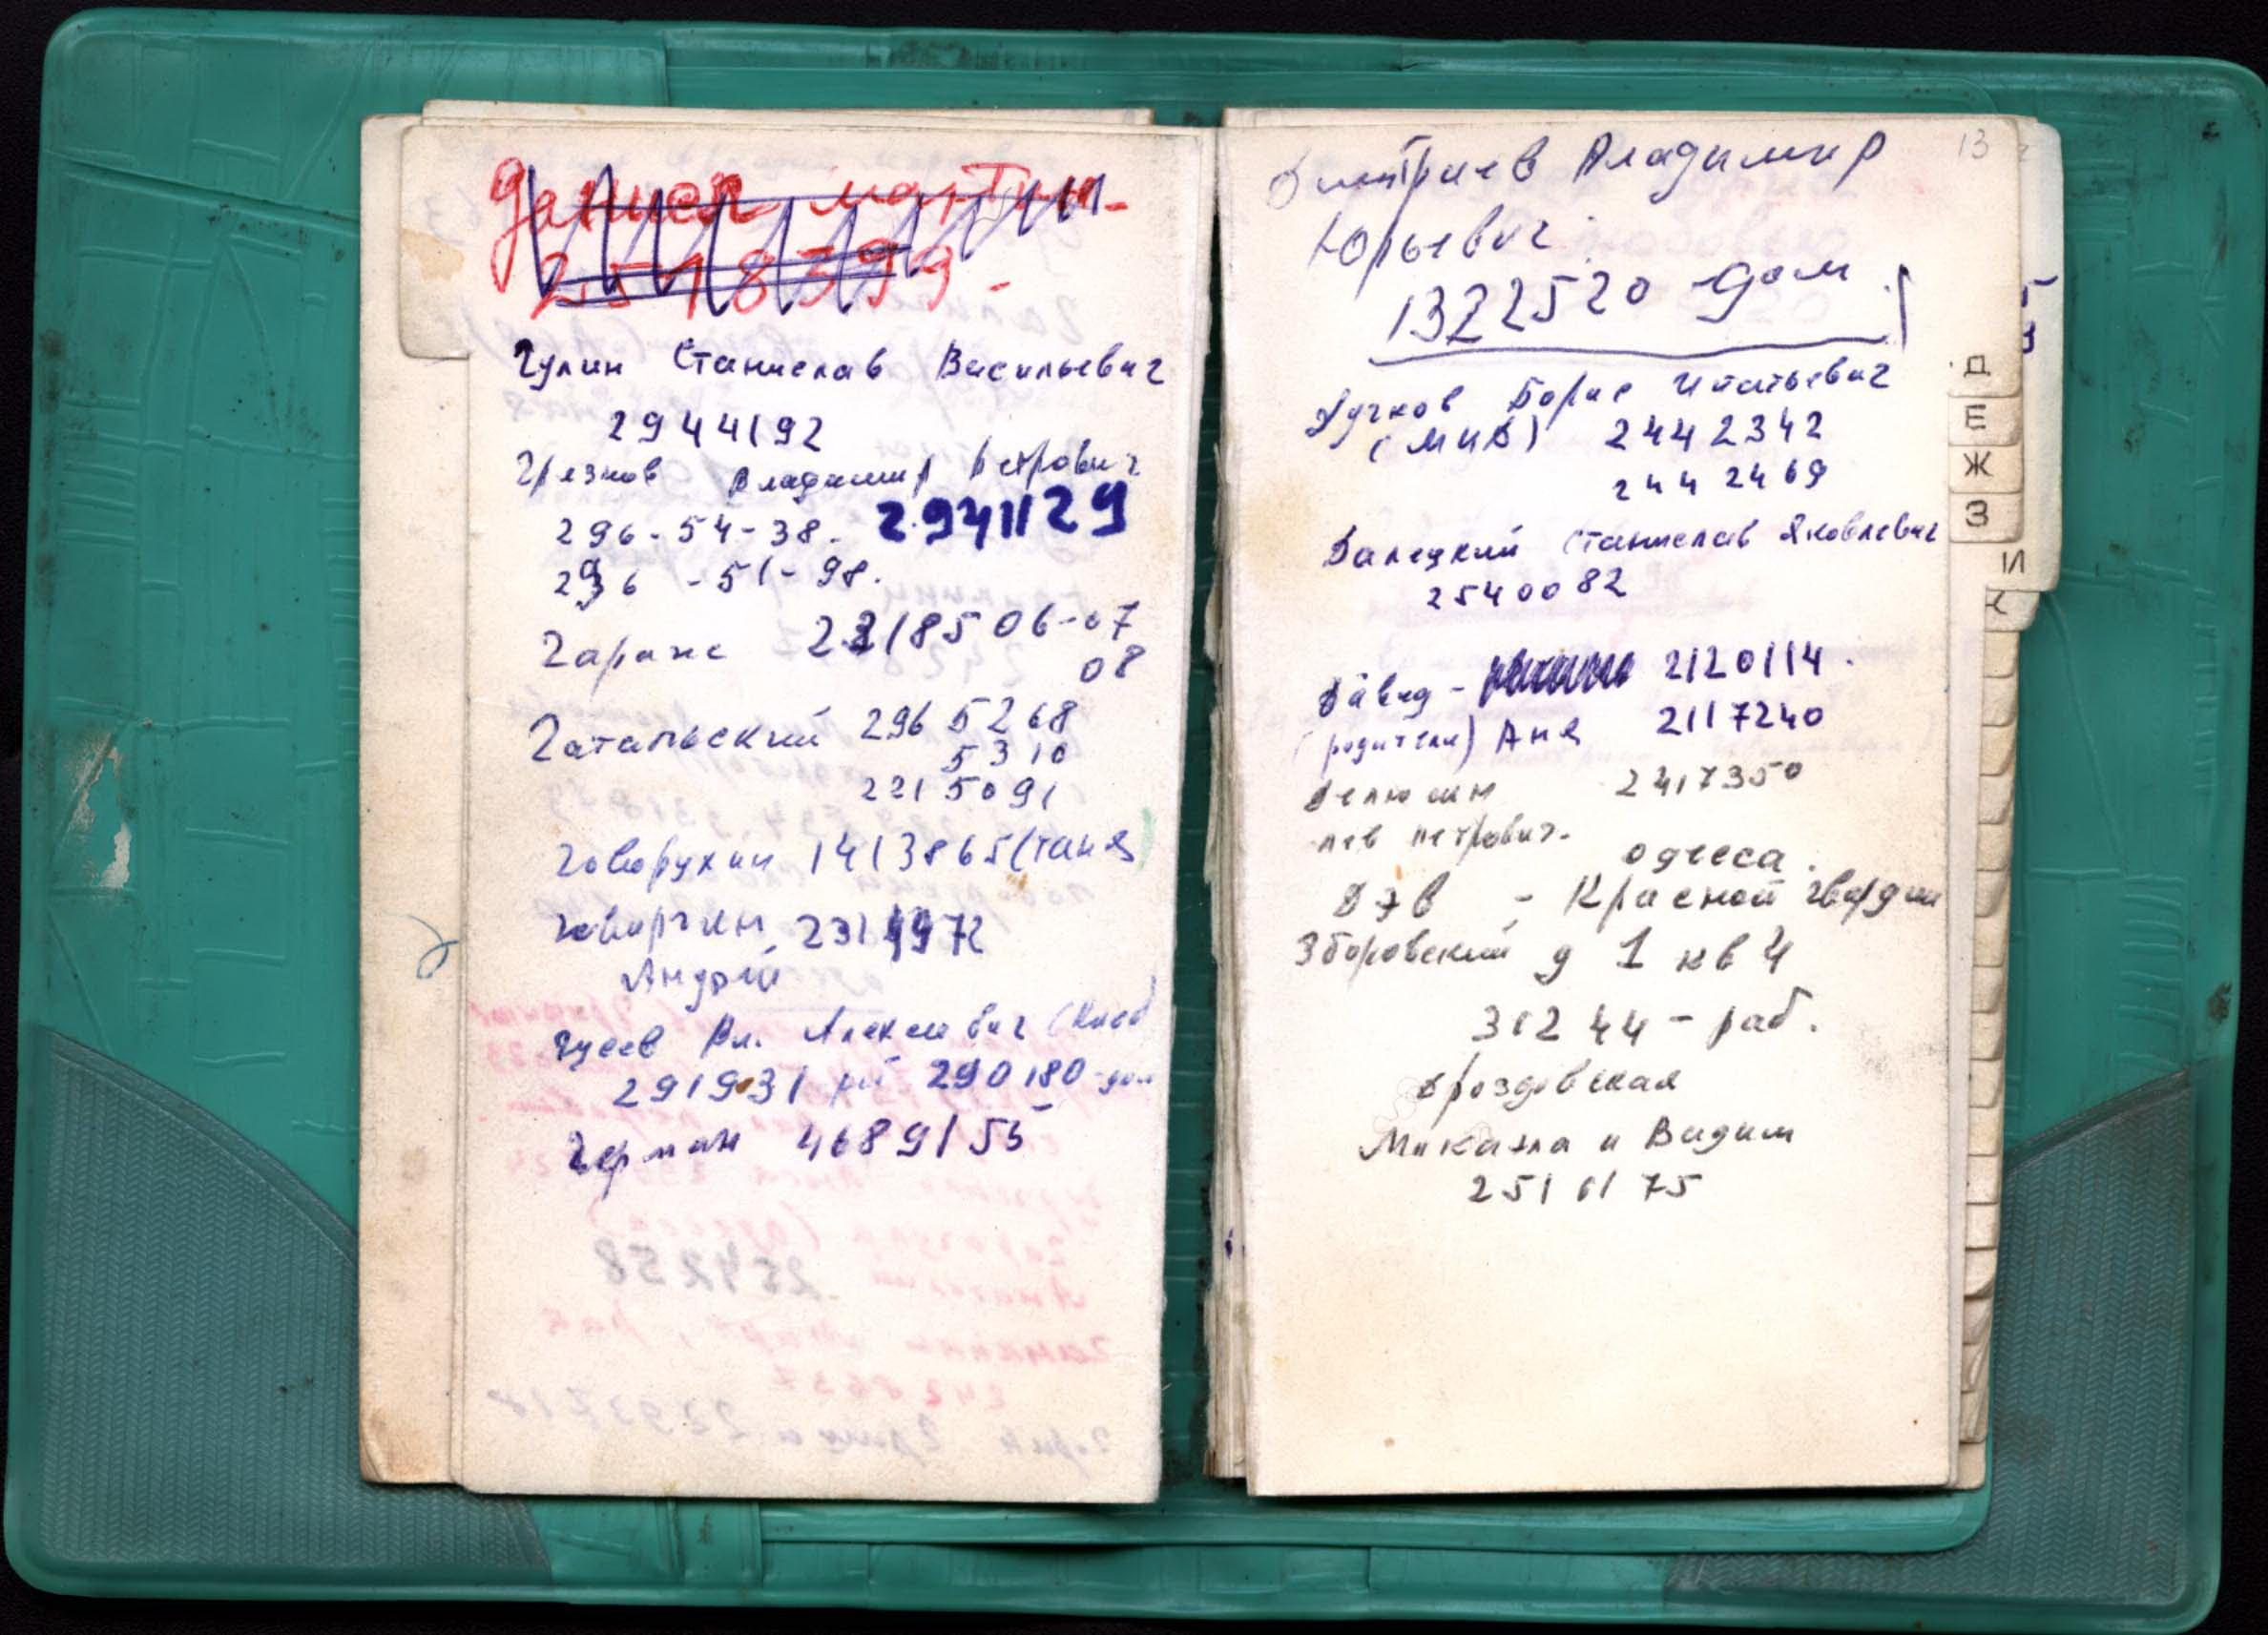 Даниел Мартин -
2518399 -
Гулин Станислав Васильевич
2944192
Грязнов Владимир Петрович
296-54-38. 2941129
296-51-98.
Гаранс 2218506-07
08
Гатальский 2965268
5310
2215091
Говорухин 1413865 (Таня)
Говоркин 2319972
Андрей
Гусев Вл. Алексеевич (Киев)
291931 290180-дом
Герман 4689155
13
Дмитриев Владимир
Юрьевич
1322520 дом.
Дучков Борис Игнатьевич
(МИД) 2442342
2442469
Далецкий Станислав Яковлевич
2540082
Давид - 2120114.
(родители) Аня 2117240
Делюсин 2417350
Лев Петрович.
Одесса.
Дэв - Красной гвардии
Зборовский д 1 кв 4
31244 - раб.
Дроздовская
Микаэла и Вадим
2510175
Д
Е
Ж
З
И